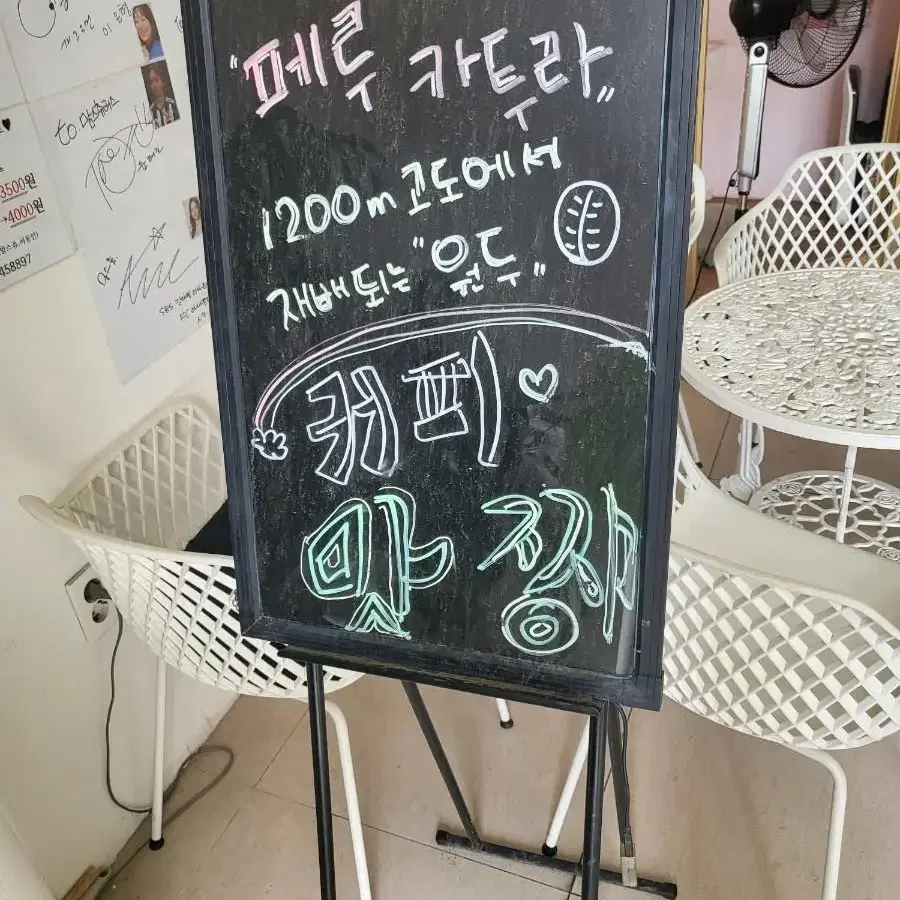 "페루 카투라"
1200m 고도에서
재배되는 "원두"
커피♡
맛 짱
3500원
→4000원
458897
to
SBS